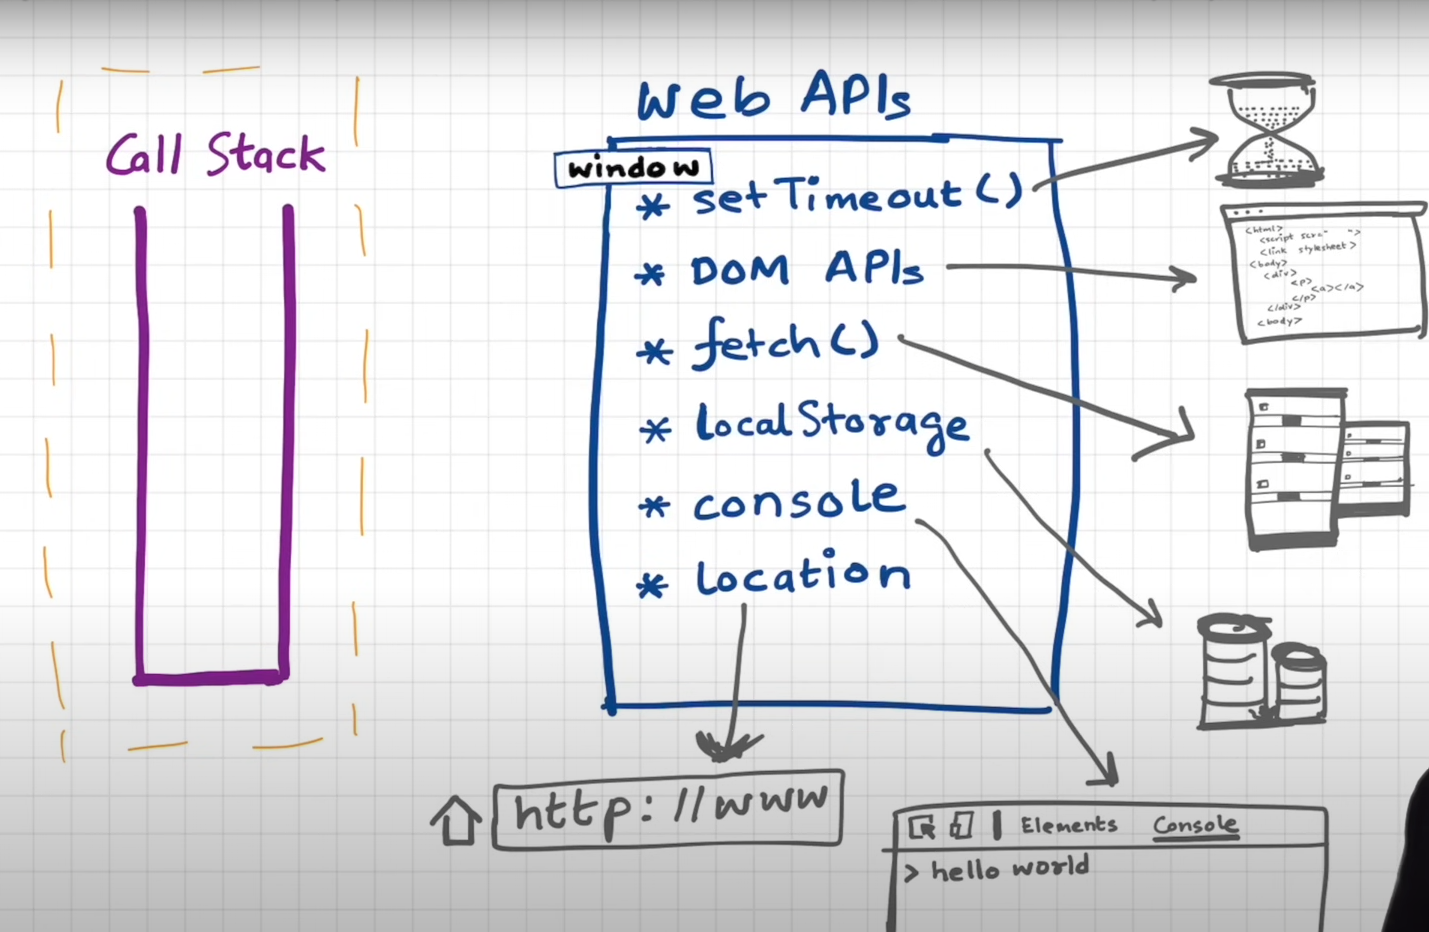 Call Stack
Web APIs
window
* setTimeout()
* DOM APIs
* fetch()
* localStorage
* console
* location
<html>
<script scr=" ">
<link stylesheet>
<body>
<div>
<p>
<a></a>
</p>
</div>
<body>
http://www
Elements Console
> hello world